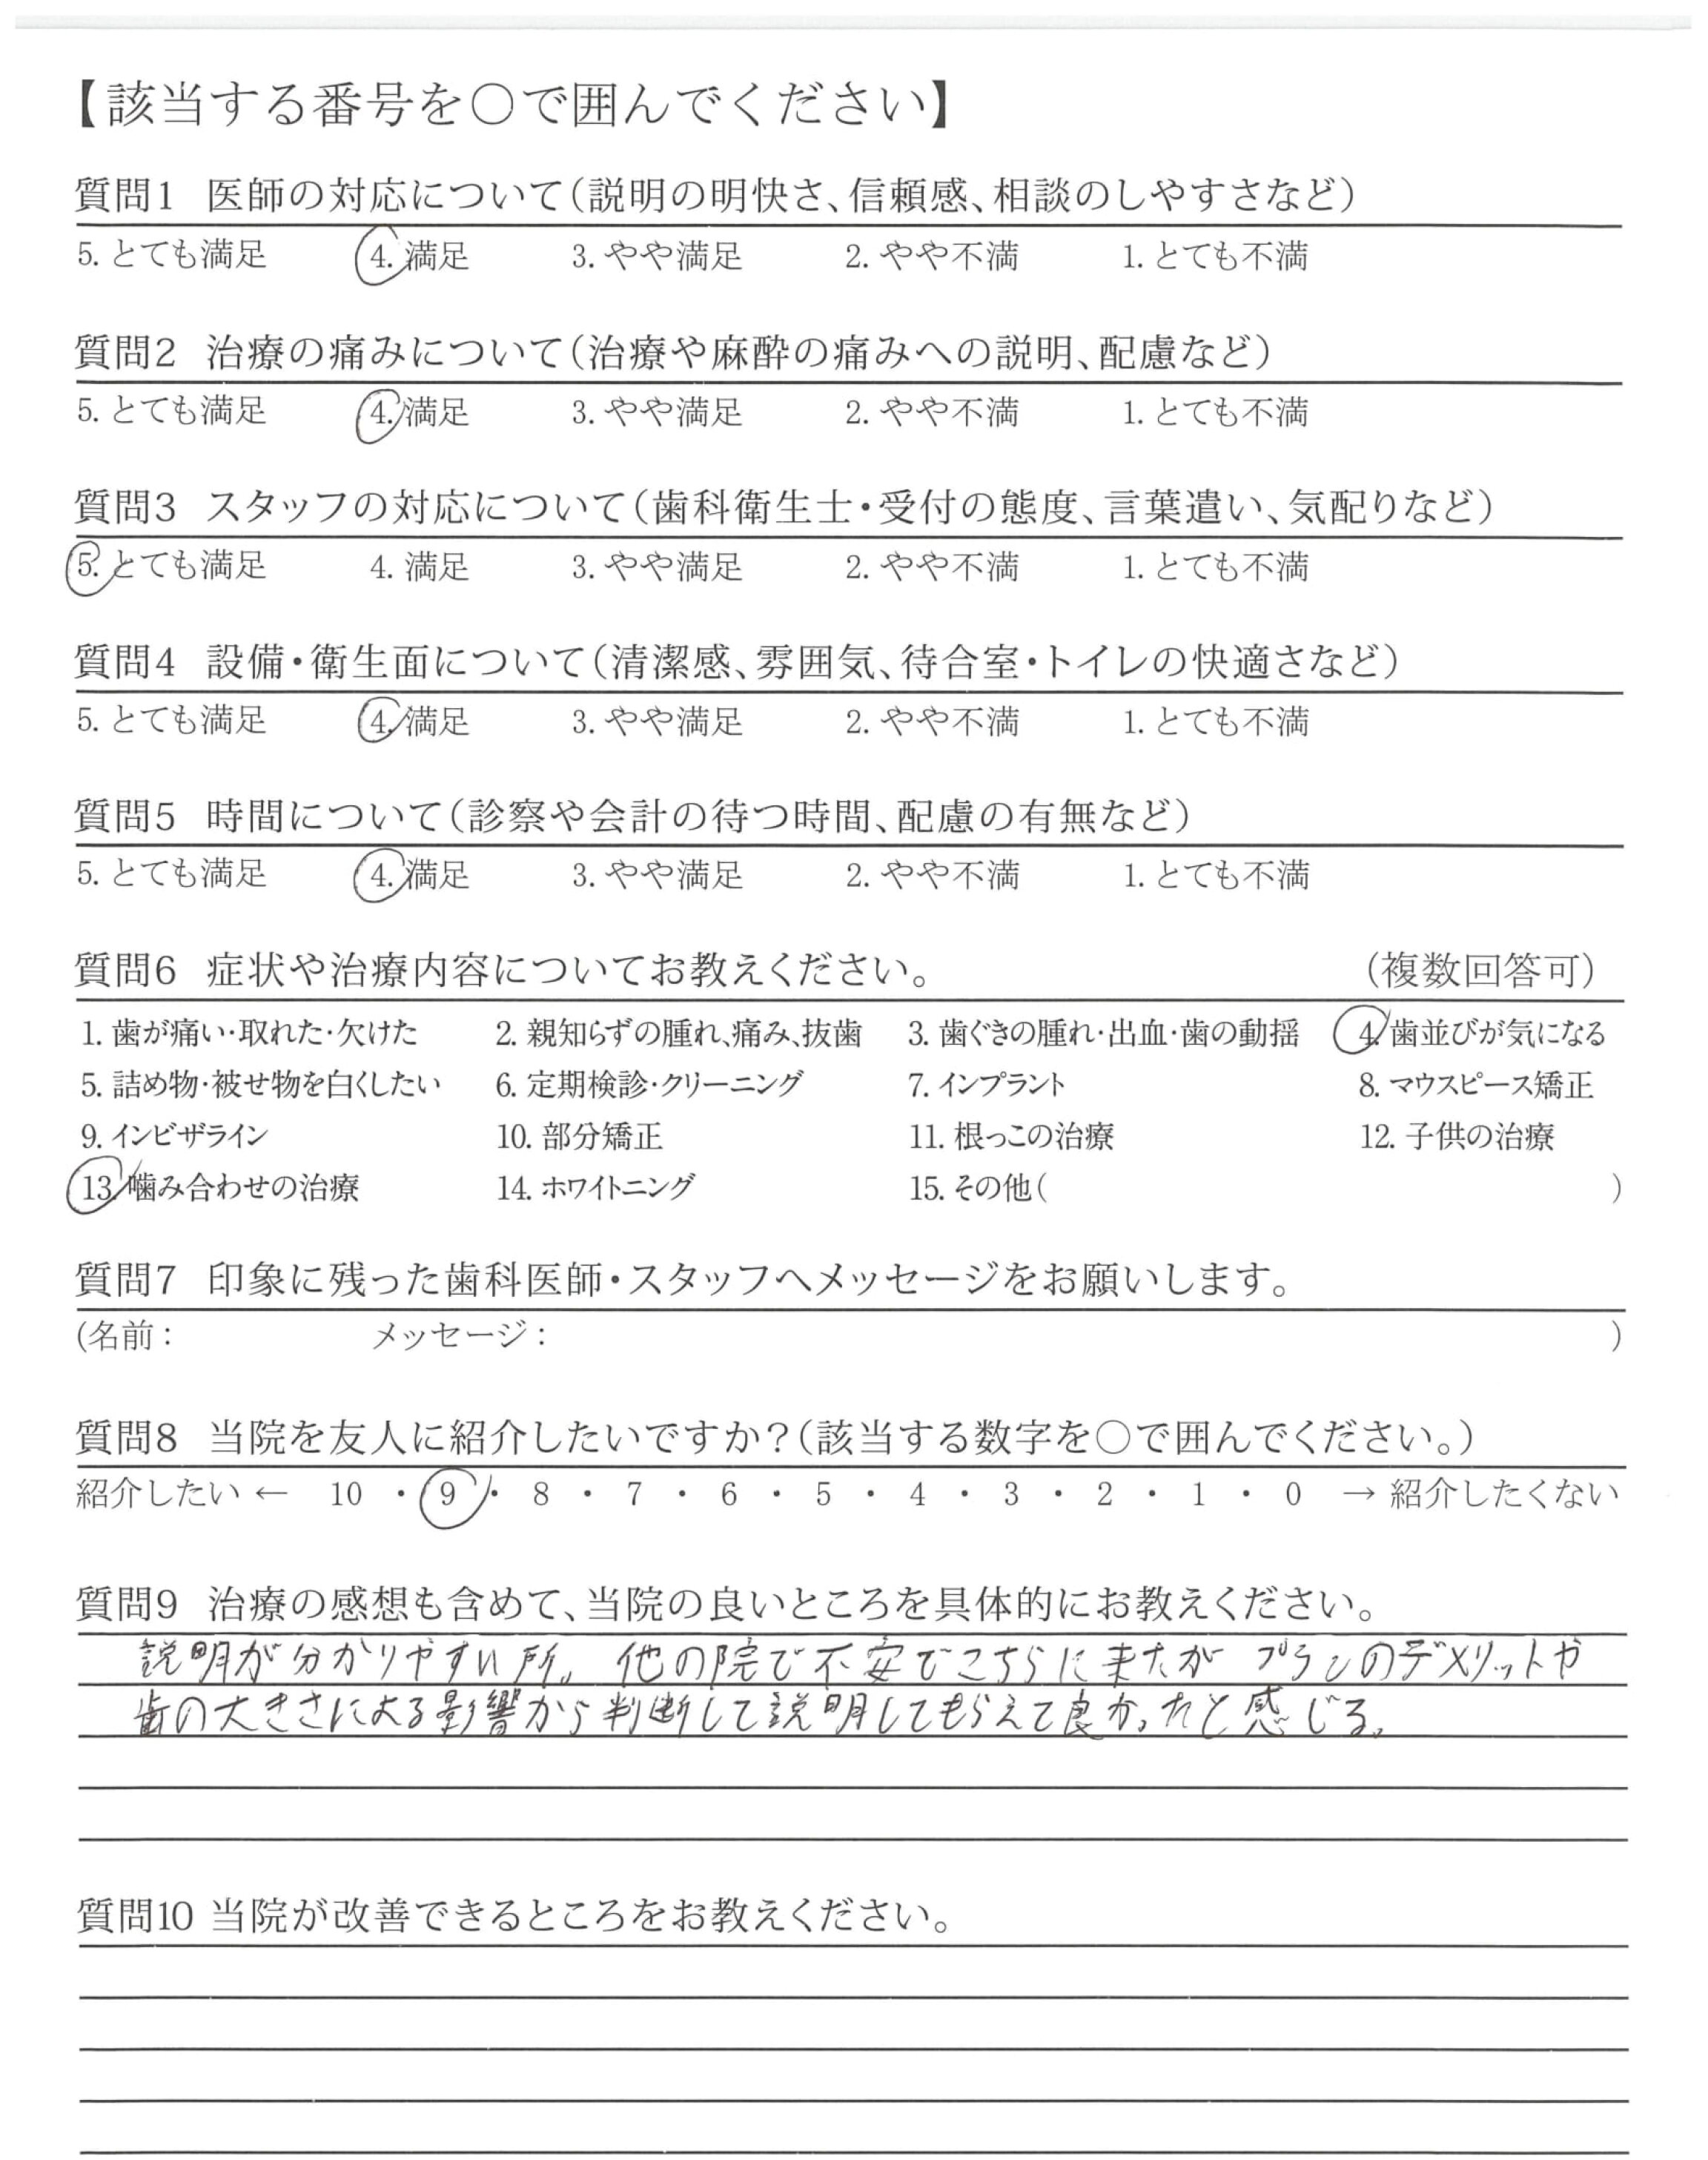 【該当する番号を○で囲んでください】
質問1 医師の対応について(説明の明快さ、信頼感、相談のしやすさなど)
5. とても満足 4. 満足 3. やや満足 2. やや不満 1. とても不満
質問2 治療の痛みについて(治療や麻酔の痛みへの説明、配慮など)
5. とても満足 4. 満足 3. やや満足 2. やや不満 1. とても不満
質問3 スタッフの対応について(歯科衛生士・受付の態度、言葉遣い、気配りなど)
5. とても満足 4. 満足 3. やや満足 2. やや不満 1. とても不満
質問4 設備・衛生面について(清潔感、雰囲気、待合室・トイレの快適さなど)
5. とても満足 4. 満足 3. やや満足 2. やや不満 1. とても不満
質問5 時間について(診察や会計の待つ時間、配慮の有無など)
5. とても満足 4. 満足 3. やや満足 2. やや不満 1. とても不満
質問6 症状や治療内容についてお教えください。 (複数回答可)
1. 歯が痛い・取れた・欠けた 2. 親知らずの腫れ、痛み、抜歯 3. 歯ぐきの腫れ・出血・歯の動揺 4. 歯並びが気になる
5. 詰め物・被せ物を白くしたい 6. 定期検診・クリーニング 7. インプラント 8. マウスピース矯正
9. インビザライン 10. 部分矯正 11. 根っこの治療 12. 子供の治療
13. 噛み合わせの治療 14. ホワイトニング 15. その他( )
質問7 印象に残った歯科医師・スタッフへメッセージをお願いします。
(名前: メッセージ: )
質問8 当院を友人に紹介したいですか?(該当する数字を○で囲んでください。)
紹介したい ← 10 ・ 9 ・ 8 ・ 7 ・ 6 ・ 5 ・ 4 ・ 3 ・ 2 ・ 1 ・ 0 → 紹介したくない
質問9 治療の感想も含めて、当院の良いところを具体的にお教えください。
説明が分かりやすい所。他の院で不安でこちらに来たが プランのデメリットや
歯の大きさによる影響から判断して説明してもらえて良かったと感じる。
質問10 当院が改善できるところをお教えください。